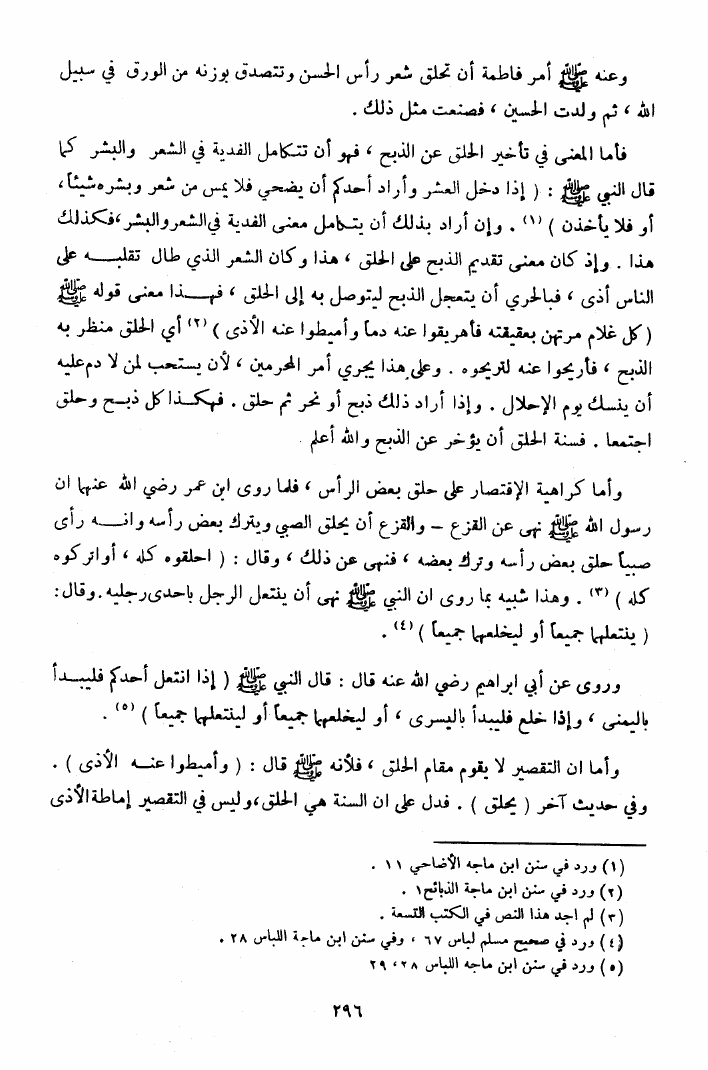 وعنه ﷺ أمر فاطمة أن تحلق شعر رأس الحسن وتتصدق بوزنه من الورق في سبيل
الله ، ثم ولدت الحسين ، فصنعت مثل ذلك .
فأما المعنى في تأخير الحلق عن الذبح ، فهو أن تتكامل الفدية في الشعر والبشر كما
قال النبي ﷺ : ( إذا دخل العشر وأراد أحدكم أن يضحي فلا يمس من شعر وبشره شيئاً ،
أو فلا يأخذن ) (١) . وإن أراد بذلك أن يتكامل معنى الفدية في الشعر والبشر ، فكذلك
هذا . وإذ كان معنى تقديم الذبح على الحلق ، هذا وكان الشعر الذي طال تقلبـــه على
الناس أذى ، فبالحري أن يتعجل الذبح ليتوصل به إلى الحلق ، فهـــذا معنى قوله ﷺ
( كل غلام مرتهن بعقيقته فأهريقوا عنه دماً وأميطوا عنه الأذى ) (٢) أي الحلق منظر به
الذبح ، فأريحوا عنه لتريحوه . وعلى هذا يجري أمر المحرمين ، لأن يستحب لمن لا دم عليه
أن ينسك يوم الإحلال . وإذا أراد ذلك ذبح أو نحر ثم حلق . فهكـــذا كل ذبـــح وحلق
اجتمعا . فسنة الحلق أن يؤخر عن الذبح والله أعلم .
وأما كراهية الإقتصار على حلق بعض الرأس ، فلما روى ابن عمر رضي الله عنهما ان
رسول الله ﷺ نهى عن القزع – والقزع أن يحلق الصبي ويترك بعض رأسه وانـــه رأى
صبياً حلق بعض رأسه وترك بعضه ، فنهى عن ذلك ، وقال : ( احلقوه كله ، أو اتركوه
كله ) (٣) . وهذا شبيه بما روى ان النبي ﷺ نهى أن ينتعل الرجل باحدى رجليه . وقال :
( ينتعلهما جميعاً أو ليخلعهما جميعاً ) (٤) .
وروى عن أبي ابراهيم رضي الله عنه قال : قال النبي ﷺ ( إذا انتعل أحدكم فليبـــدأ
باليمنى ، وإذا خلع فليبدأ باليسرى ، أو ليخلعهما جميعاً أو لينتعلهما جميعاً ) (٥) .
وأما ان التقصير لا يقوم مقام الحلق ، فلأنه ﷺ قال : ( وأميطوا عنـــه الأذى ) .
وفي حديث آخر ( يحلق ) . فدل على ان السنة هي الحلق ، وليس في التقصير إماطة الأذى
(١) ورد في سنن ابن ماجه الأضاحي ١١ .
(٢) ورد في سنن ابن ماجة الذبائح ١ .
(٣) لم اجد هذا النص في الكتب التسعة .
(٤) ورد في صحيح مسلم لباس ٦٧ ، وفي سنن ابن ماجة اللباس ٢٨ .
(٥) ورد في سنن ابن ماجه اللباس ٢٨ ، ٢٩
٢٩٦